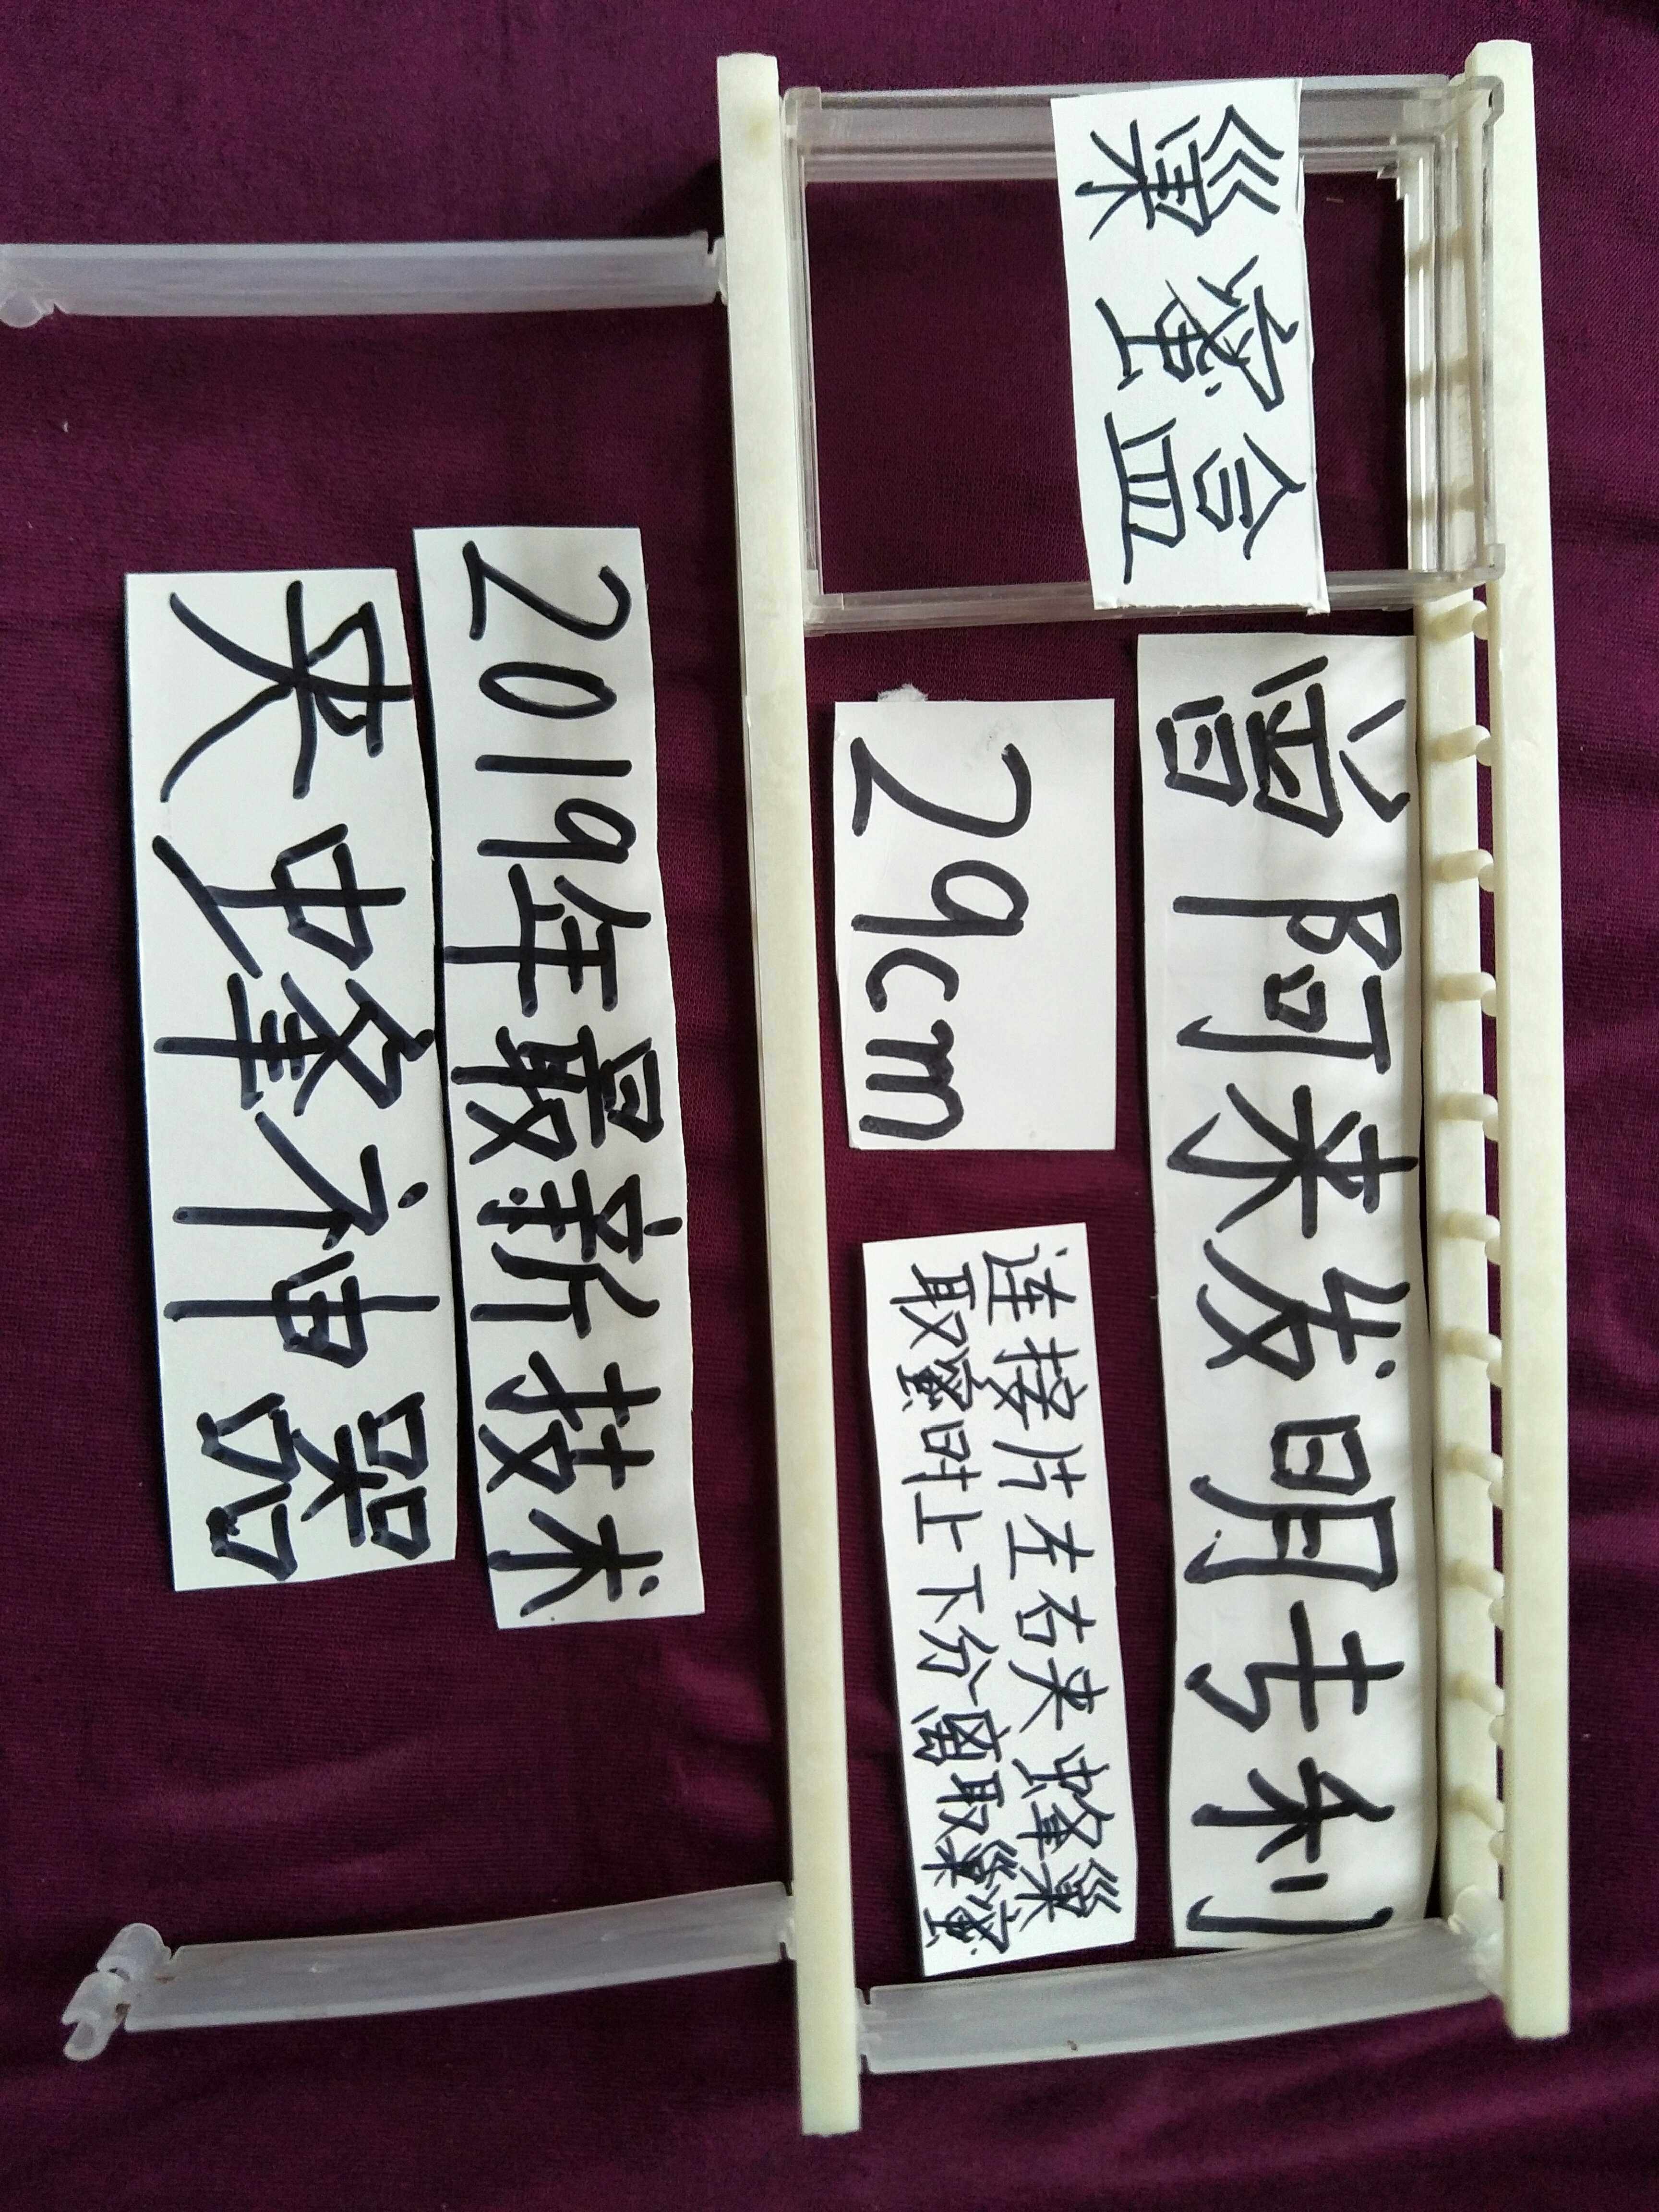 巢蜜盒
曾阿来发明专利
29cm
连接片左右夹蜂巢
取蜜时上下分离取巢蜜
2019年最新技术
夹中蜂神器